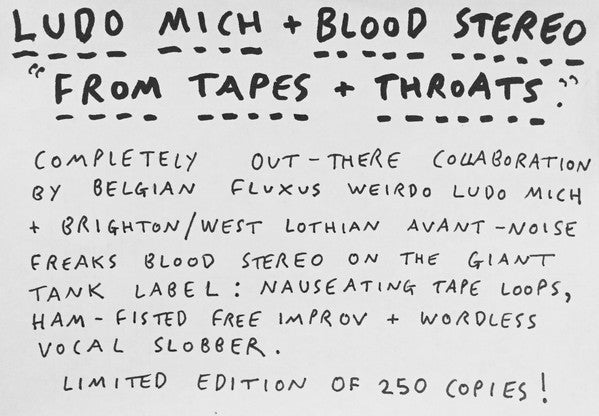 LUDO MICH + BLOOD STEREO
"FROM TAPES + THROATS."
COMPLETELY OUT-THERE COLLABORATION
BY BELGIAN FLUXUS WEIRDO LUDO MICH
+ BRIGHTON/WEST LOTHIAN AVANT-NOISE
FREAKS BLOOD STEREO ON THE GIANT
TANK LABEL: NAUSEATING TAPE LOOPS,
HAM-FISTED FREE IMPROV + WORDLESS
VOCAL SLOBBER.
LIMITED EDITION OF 250 COPIES!